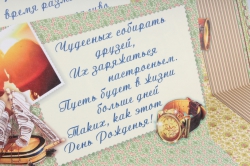 время раз
Чудесных собирать
друзей,
Их заряжаться
настроеньем.
Пусть будет в жизни
больше дней
Таких, как этот
День Рожденья!